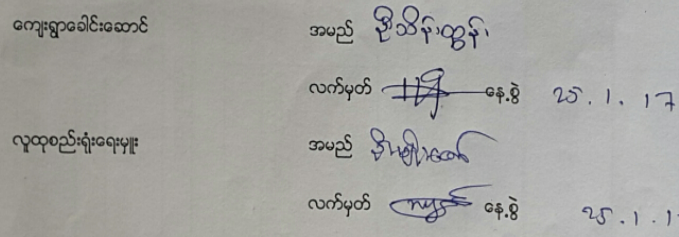 ကျေးရွာခေါင်းဆောင် အမည် ဦးသိန်းထွန်း
လက်မှတ် နေ့စွဲ 25.1.17
လူထုစည်းရုံးရေးမှူး အမည်
လက်မှတ် နေ့စွဲ 25.1.1